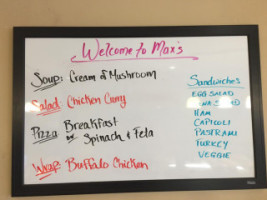 Welcome to Max's
Soup: Cream of Mushroom
Salad: Chicken Curry
Pizza: Breakfast
or Spinach & Feta
Wrap: Buffalo Chicken
Sandwiches
EGG SALAD
TUNA SALAD
HAM
CAPICOLI
PASTRAMI
TURKEY
VEGGIE